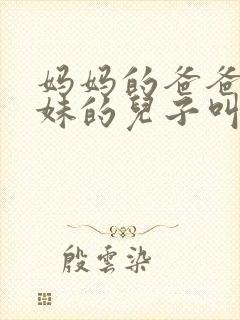 妈妈的爸爸
妹的兒子叫
殷雲染